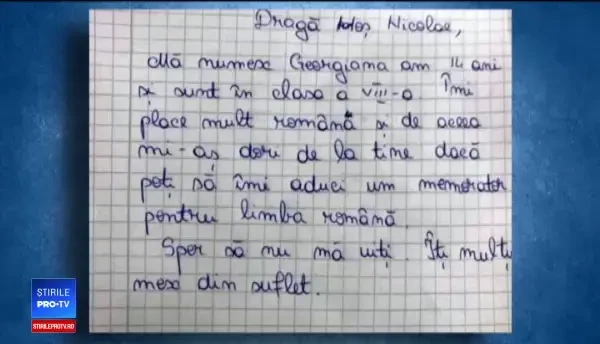 Dragă Moș Nicolae,
Mă numesc Georgiana am 14 ani
și sunt în clasa a VIII-a. Îmi
place mult română și de aceea
mi-aș dori de la tine dacă
poți să îmi aduci um memorator
pentru limba română.
Sper să nu mă uiți. Îți mulțu
mesc din suflet.
ȘTIRILE
PRO•TV
STIRILEPROTV.RO